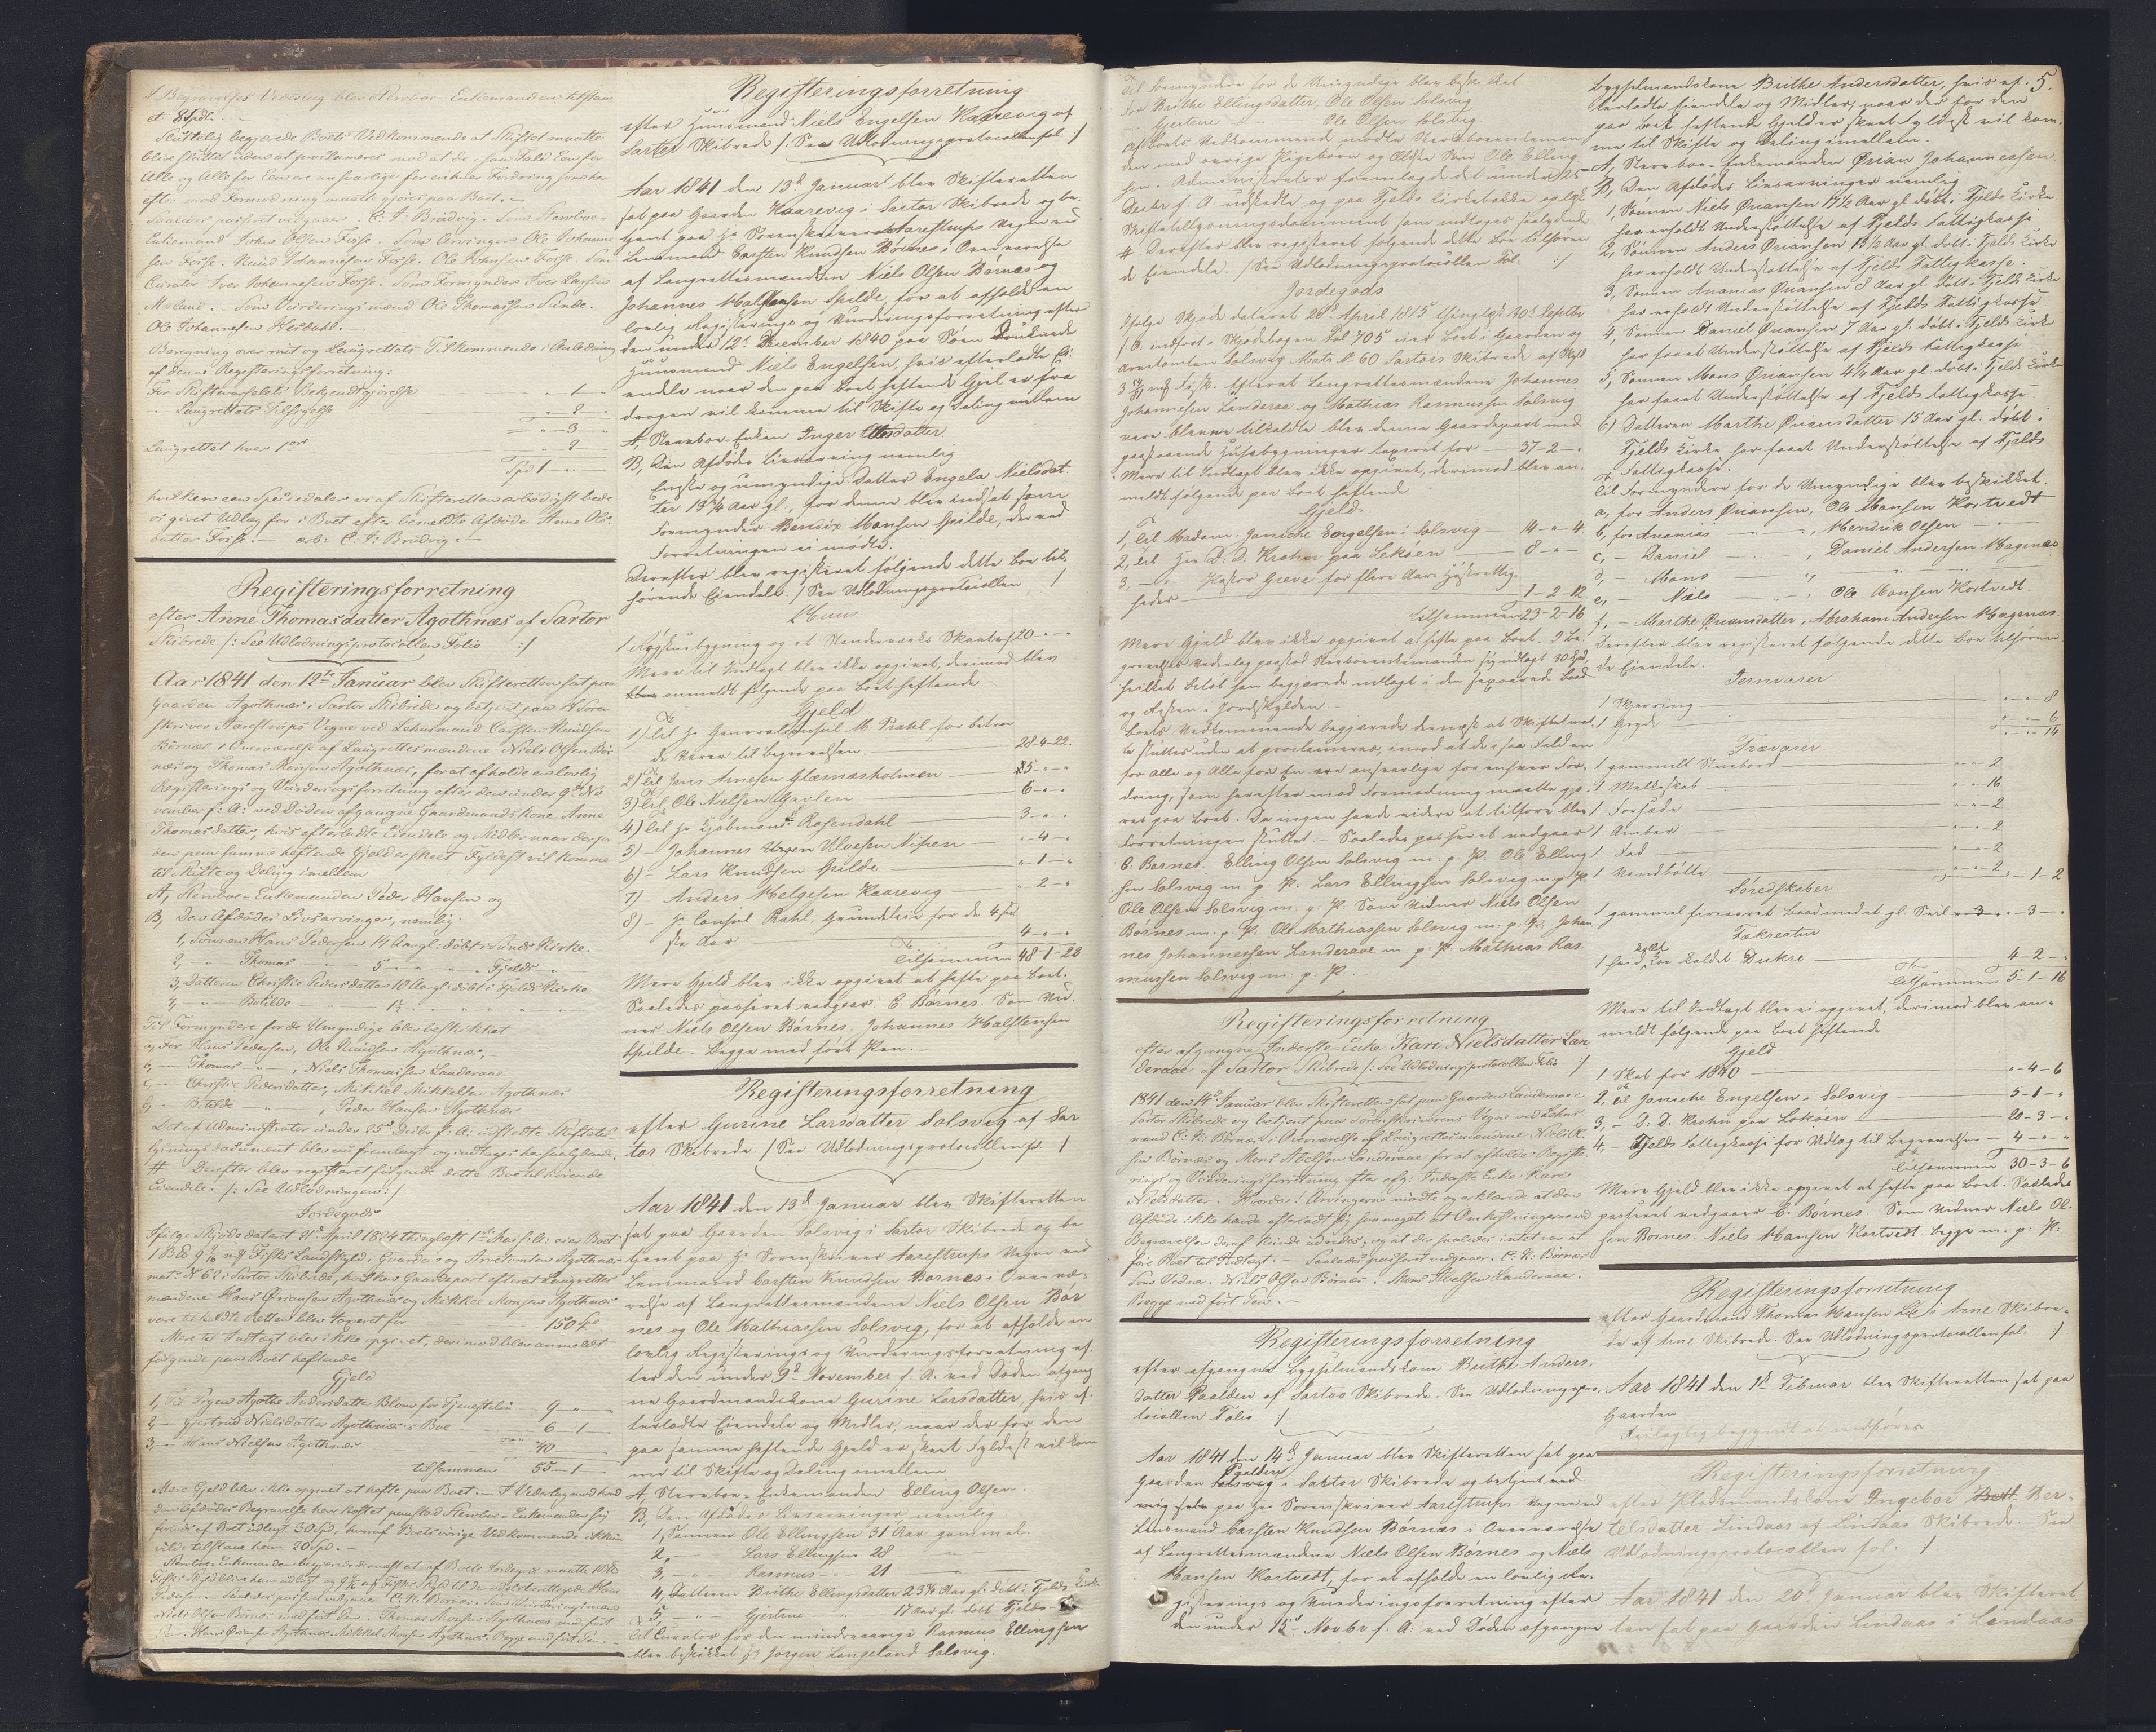 I Begravelses Vederlag blev Stervboe Enkemanden tilstaaet
8 Spdl. -
Sluttelig begjærede Boets Vedkommende at Skiftet maatte
blive sluttet uden at proclameres mod at de i saa Fald Een for
Alle og Alle for Een ere ansvarlige for enhver Fordring som her
efter mod Formodning maatte gjøres paa Boet. -
Saaledes passeret vidgaaer. C. F. Brudvig. Som Stervboe
Enkemand Johs Olsen Fosse. Som Arvinger Ole Johanne
sen Fosse. Knud Johannesen Fosse. Ole Johnsen Fosse. Som
Curator Iver Johannesen Fosse. Som Formynder Iver Larsen
Moland. - Som Vurderingsmænd Ole Thomassen Sunde.
Ole Johannesen Herdahl. -
Beregning over mit og Laugrettets Tilkommende i Anledning
af denne Registeringsforretning:
For Skiftevæsenets Bekjendtgjørelse 1
- Laugrettets Tilsigelse 2
3
Laugrettet hver 1 ort 2
Spd 1
hvilken een Speciedaler vi af Skifteretten ærbødigst bede
os givet Udlæg for i Boet efter bemeldte Afdøde Anne Ols
datter Fosse. - ærb: C. F. Brudvig. -
Registeringsforretning
efter Anne Thomasdatter Agothnæs af Sartor
Skibrede /: See Udlodningsprotocollens Folio :/
Aar 1841 den 12te Januar blev Skifteretten sat paa
Gaarden Agothnæs i Sartor Skibrede og betjent paa H Soren
skriver Aarestrups Vegne ved Lehnsmand Carsten Knudsen
Børnæs i Overværelse af Laugrettesmændene Niels Olsen Bør
næs og Thomas Monsen Agothnæs, for at afholde en lovlig
Registerings og Vurderingsforretning efter den under 9de No
vember f: A: ved Døden afgangne Gaardmandskone Anne
Thomasdatter, hvis efterladte Eiendele og Midler naar der for
den paa samme heftende Gjeld er skeet Fyldest vil komme
til Skifte og Deling imellem
A, Stervboe-Enkemanden Peder Hansen og
B, Den Afdødes Livsarvinger, nemlig:
1, Sønnen Hans Pedersen 14 Aar gl: døbt i Sunds Kirke.
2, - Thomas - 5 - - - Fjelds -
3, Datteren Christie Pedersdatter 10 Aar gl: døbt i Fjelds Kirke
4, - Botilde - 1½ - - - - -
Til Formyndere for de Umyndige blev beskikket
a, For Hans Pedersen, Ole Knudsen Agothnæs,-
b, - Thomas - , Niels Thomasen Landeraae
c, - Christie Pedersdatter, Mikkel Mikkelsen Agothnæs
d, - Botilde - , Peder Hansen Agothnæs
Det af Administrator under 25de Decbr f: A: udstedte Skiftetil
lysnings Document blev nu fremlagt og indtages hersaalydende:
# Derefter blev registeret følgende dette Bo tilhørende
Eiendele. /: See Udlodningen :/
Jordegods
Ifølge Skjøde dateret 21de April 1824 thinglæst
1 Bd 9 mk Fiskes Landskyld i Gaarden og Annetomten Agothnæs
matr: N 62 i Sartor Skibrede, hvilken Gaardepart efterat Laugrettes
mændene Hans Ørjansen Agothnæs og Mikkel Monsen Agothnæs
vare tilkaldte Retten blev taxeret for 150 Spd
Mere til Indtægt blev ikke opgivet, derimod blev anmeldt
følgende paa Boet heftende
Gjeld
1, Til Pigen Agothe Andersdatter Blom for Tjenesteløn 9 - -
2, - Gjertrud Nielsdatter Agothnæs's Boe 6 - 1 -
3, - Hans Nielsen Agothnæs 40
tilsammen 55 - 1 -
Mere Gjeld blev ikke opgivet at hefte paa Boet. - I Vederlag mod hvad
den Afdødes Begravelse har kostet paastod Stervboe Enkemanden sig
forlods af Boet udlagt 30 Spd, hvoraf Boets øvrige Vedkommende ikkun
vilde tilstaae ham 20 Spd. -
Registeringsforretning
efter Huusmand Niels Engelsen Kaarevig af
Sartor Skibrede /: See Udlodningsprotocollen fol :/
Aar 1841 den 13d Januar blev Skifteretten
sat paa Gaarden Kaarevig i Sartor Skibrede og be
tjent paa Hr Sorenskriver Aarestrups Vegne ved
Lensmand Carsten Knudsen Børnes i Overværelse
af Laugrettesmændene Niels Olsen Børnæs og
Johannes Halstensen Spilde, for at afholde en
lovlig Registerings og Vurderingsforretning efter
den under 12te December 1840 paa Søen druknede
Huusmand Niels Engelsen, hvis efterladte Ei
endele naar den paa Boet heftende Gjel er fra
dragen vil komme til Skifte og Deling mellem
A, Stervboe-Enken Inger Olsdatter
B, Den Afdødes Livsarving nemlig
Eneste og umyndige Datter Engela Nielsdat
ter 13¾ Aar gl., for denne blev indsat som
Formynder Bendix Monsen Spilde, der ved
Forretningen ei mødte.
Derefter blev registeret følgende dette Boe til
hørende Eiendele. / See Udlodningsprotocollen /
Huus
1 Røgstuebygning og et Stenderværks Skaabuf 20 - -
Mere til Indtægt blev ikke opgivet, derimod blev
blev anmeldt følgende paa Boet heftende
Gjeld
1) til Hr Generalconsul M. Krahl for betroe
de Varer til Begravelsen. 28-4-22.
2) til Jens Arnesen Glæsnæsholmen 25 - -
3) til Ole Nielsen Gavlen 6 - -
4) til Hr Kjøbmand Rosendahl 3 - -
5) - Johannes Ulvesen Nipen - 4 -
6) - Lars Knudsen Spilde - 1 -
7) - Anders Helgesen Kaarevig - 2 -
8) - Hr Consul Krahl. Grundleie for de 4 sid
ste Aar 4 - -
Tilsammen 48-1-22
Mere Gjeld blev ikke opgivet at hefte paa Boet.
Saaledes passeret vedgaaer. C. Børnes. Som Vid
ner Niels Olsen Børnes. Johannes Halstensen
Spilde. Begge med ført Pen. -
Registeringsforretning
efter Gurine Larsdatter Solsvig af Sar
tor Skibrede. / See Udlodningsprotocollen fol /
Aar 1841 den 13d Januar blev Skifteretten
sat paa Gaarden Solsvig i Sartor Skibrede og be
tjent paa Hr Sorenskriver Aarestrups Vegne ved
Lensmand Carsten Knudsen Børnes i Overvæ
relse af Laugrettesmændene Niels Olsen Bør
nes og Ole Mathiassen Solsvig, for at afholde en
lovlig Registerings og Vurderingsforretning ef
ter den under 9d November f. A. ved Døden afgang
ne Gaardmandskone Gurine Larsdatter, hvis ef
terladte Eiendele og Midler, naar der for den
paa samme heftende Gjeld er skeet Fyldest vil kom
me til Skifte og Deling imellem
A, Stervboe-Enkemanden Elling Olsen
B, Den Afdødes Livsarvinger nemlig
1, Sønnen Ole Ellingsen 31 Aar gammel.
2, - Lars Ellingsen 28 -
3, - Rasmus - 21 -
4, Datteren Brithe Ellingsdatter 23¾ Aar gl. døbt i Fjelds Kirke
5, - Gjertine - 17 Aar gl. døbt Fjelds
til Curator for den mindreaarige Rasmus Ellingsen
blev beskikket Hr Jørgen Langeland Solsvig.
Til Formyndere for de Umyndige blev beskikket
for Brithe Ellingsdatter, Ole Olsen Solsvig
- Gjertine - Ole Olsen Solsvig
Af Boets Vedkommende, mødte Stervboeenkeman
den med øvrige Pigebørn og ældste Søn Ole Elling
sen. Administrator fremlagde det under 25
Decbr f. A. udstedte og paa Fjelds Kirkebakke oplæste
Skiftetillysningsdocument som indtages saalydende
# Derefter blev registeret følgende dette Boe tilhøren
de Eiendele. / See Udlodningsprotocollen Fol. :/
Jordegods
Ifølge Skjøde dateret 28de April 1815 thinglæst 30d Septbr
s. A. indført i Skjødebogen Fol 705 eier Boet i Gaarden og
Annetomten Solsvig Matr. N 60 Sartors Skibrede af Skyld
Johannesen Landeraa og Mathias Rasmussen Solsvig
vare blevne tilkaldte blev denne Gaardepart med
paastaaende Huusebygninger taxeret for 37 - 2 -
Mere til Indtægt blev ikke opgivet, derimod blev an
meldt følgende paa Boet heftende
Gjeld
1, til Madam Janiche Engelsen i Solsvig 14 - - 4
2, til Hr D. D. Krohn paa Lekøen 8 - -
3, - Pastor Greve for flere Aars Høstrettig
heder 1-2-12
tilsammen 23-2-16
Mere Gjeld blev ikke opgivet at hefte paa Boet. I Be
gravelses Vederlag paastod Stervboeenkemanden sig udlagt 30 Spd,
hvilket Beløb han begjærede udlagt i den taxerede Baad
og Resten i Jordskylden. -
Boets Vedkommende begjærede dernæst at Skiftet maat
te sluttes uden at proclameres, imod at de i saa Fald en
for Alle og Alle for En ere ansvarlige for enhver For
dring, som herefter mod Formodning maatte gjø
res paa Boet. Da ingen havde videre at tilføre blev
Forretningen sluttet. - Saaledes passeret vedgaaer
C. Børnes. Elling Olsen Solsvig m. f. P. Ole Elling
sen Solsvig m. f. P. Lars Ellingsen Solsvig m. f. P.
Ole Olsen Solsvig m. f. P. Som Vidner Niels Olsen
Børnes m. f. P. Ole Mathiassen Solsvig m. f. P. Johan
nes Johannesen Landeraae m. f. P. Mathias Ras
mussen Solsvig m. f. P.
Registeringsforretning
efter afgangne Inderste-Enke Kari Nielsdatter Lan
deraae af Sartor Skibrede /: See Udlodningsprotocollen Folio :/
1841 den 14de Januar blev Skifteretten sat paa Gaarden Landeraae i
Sartor Skibrede og betjent paa Sorenskriverens Vegne ved Lehns
mand C. K. Børnæs i Overværelse af Laugrettesmændene Niels Ol
sen Børnæs og Mons Abelsen Landeraae for at afholde Registe
rings og Vurderingsforretning efter afg: Inderste Enke Kari
Nielsdatter. Arvingerne mødte og erklærede at den
Afdøde ikke havde efterladt sig saameget at Omkostningerne ved
Begravelsen deraf kunde udredes, og at der saaledes intet var at
føre Boet til Indtægt. - Saaledes passeret vidgaaer. C. K. Børnæs
Som Vidner. Niels Olsen Børnæs. Mons Abelsen Landeraae.
Begge med ført Pen. -
Registeringsforretning
efter afgangne Bygselmandskone Brithe Anders
datter Paalden af Sartor Skibrede. See Udlodningspro
tocollen Folio /
Aar 1841 den 14d Januar blev Skifteretten sat paa
Gaarden i Sartor Skibrede og betjent ved
paa Hr Sorenskriver Aarestrups Vegne ved
Lensmand Carsten Knudsen Børnæs i Overværelse
af Laugrettesmændene Niels Olsen Børnes og Niels
Hansen Kortvedt, for at afholde en lovlig Re
gisterings og Vurderingsforretning efter
den under Novbr f. A. ved Døden afgangne
5.
Bygselmandskone Brithe Andersdatter, hvis ef
terladte Eiendele og Midler, naar der for den
paa Boet heftende Gjeld er skeet Fyldest vil kom
me til Skifte og Deling imellem.
A, Stervboe-Enkemanden Ørian Johannessen
B, Den Afdødes Livsarvinger nemlig
1, Sønnen Niels Ørjansen 17½ Aar gl døbt i Fjelds Kirke
har erholdt Understøttelse af Fjelds Fattigkasse
2, Sønnen Anders Ørjansen 13½ Aar gl. døbt i Fjelds Kirke
har erholdt Understøttelse af Fjelds Fattigkasse.
3, Sønnen Ananias Ørjansen 8 Aar gl. døbt i Fjelds Kirke
har erholdt Understøttelse af Fjelds Fattigkasse
4, Sønnen Daniel Ørjansen 7 Aar gl. døbt i Fjelds Kirke
har faaet Understøttelse af Fjelds Fattigkasse.
5, Sønnen Mons Ørjansen 4½ Aar gl. døbt i Fjelds Kirke
har faaet Understøttelse af Fjelds Fattigkasse.
6) Datteren Marthe Ørjansdatter 15 Aar gl. døbt i
Fjelds Kirke har faaet Understøttelse af Fjelds
Fattigkasse.
Til Formyndere for de Umyndige blev beskikket
a, for Anders Ørjansen, Ole Monsen Kortvedt
b, for Ananias - , Hendrik Olsen -
c, - Daniel - , Daniel Andersen Hagenæs
d, - Mons - , -
e, - Niels - , Ole Monsen Kortvedt.
f, - Marthe Ørjansdatter, Abraham Andersen Hagenæs.
Derefter blev registeret følgende dette Boe tilhøren
de Eiendele.
Jernvarer
1 Skjerring - - 8
1 Gryde - - 6
- - 14
Trævarer
1 gammelt Stuebord - - 2
1 Melkeskab - - 16
1 - - 2
1 Ambar - - 2
1 Fad - - 2
1 Vandbøtte - - 2
- 1 - 2
Søredskaber
1 gammel fireaaret Baad med et gl. Seil - 3 -
Fækreatur
1 Koe kaldet Dukre 4 - 2 -
Tilsammen 5-1-16
Mere til Indtægt blev ei opgivet, derimod blev an
meldt følgende paa Boet heftende
Gjeld
1 Skat for 1840 - 4 - 6
2, til Janiche Engelsen i Solsvig 5 - 1 -
3, - D. D. Krohn paa Lekøen 20 - 3 -
4, - Fjelds Fattigkasse for Udlæg til Begravelsen 4 - -
tilsammen 30-3-6
Mere Gjeld blev ikke opgivet at hefte paa Boet. Saaledes
passeret vedgaaer C. Børnes. Som Vidner Niels Ol
sen Børnes. Niels Hansen Kortvedt. begge m. f. P.
Registeringsforretning
efter Gaardmand Thomas Hansen Lie i Arne Skibre
de af Arne Skibrede. See Udlodningsprotocollen fol. /
Aar 1841 den 1d Februar blev Skifteretten sat paa
Gaarden
Feilagtig begyndt at indføres
Registeringsforretning
efter Pladsmandskone Ingebor Bert Ber
telsdatter Lindaas af Lindaas Skibrede. See
Udlodningsprotocollen fol. /
Aar 1841 den 20d Januar blev Skifteret
ten sat paa Gaarden Lindaas i Lindaas